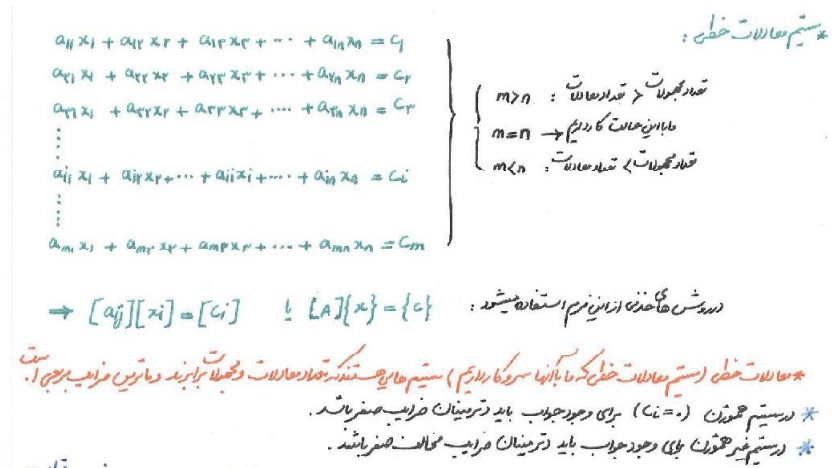 * سیستم معادلات خطی :
a₁₁x₁ + a₁₂x₂ + a₁₃x₃ + ... + a₁ₙxₙ = c₁
a₂₁x₁ + a₂₂x₂ + a₂₃x₃ + ... + a₂ₙxₙ = c₂
a₃₁x₁ + a₃₂x₂ + a₃₃x₃ + ... + a₃ₙxₙ = c₃
aᵢ₁x₁ + aᵢ₂x₂ + ... + aᵢᵢxᵢ + ... + aᵢₙxₙ = cᵢ
aₘ₁x₁ + aₘ₂x₂ + aₘ₃x₃ + ... + aₘₙxₙ = cₘ
m>n : تعداد مجهولات < تعداد معادلات
m=n → ما با این حالت کار داریم
m<n : تعداد مجهولات > تعداد معادلات
در روش های حذفی از این فرم استفاده میشود :
⇒ [aij][xi] = [ci] یا [A]{x} = {c}
* معادلات خطی (سیستم معادلات خطی که ما با آنها سر و کار داریم) سیستم هایی هستند که تعداد معادلات و مجهولات برابرند و ماتریس ضرایب مربعی است.
* در سیستم هموژن (ci = ۰) برای وجود جواب باید دترمینان ضرایب صفر باشد.
* در سیستم غیر هموژن برای وجود جواب باید دترمینان ضرایب مخالف صفر باشد.